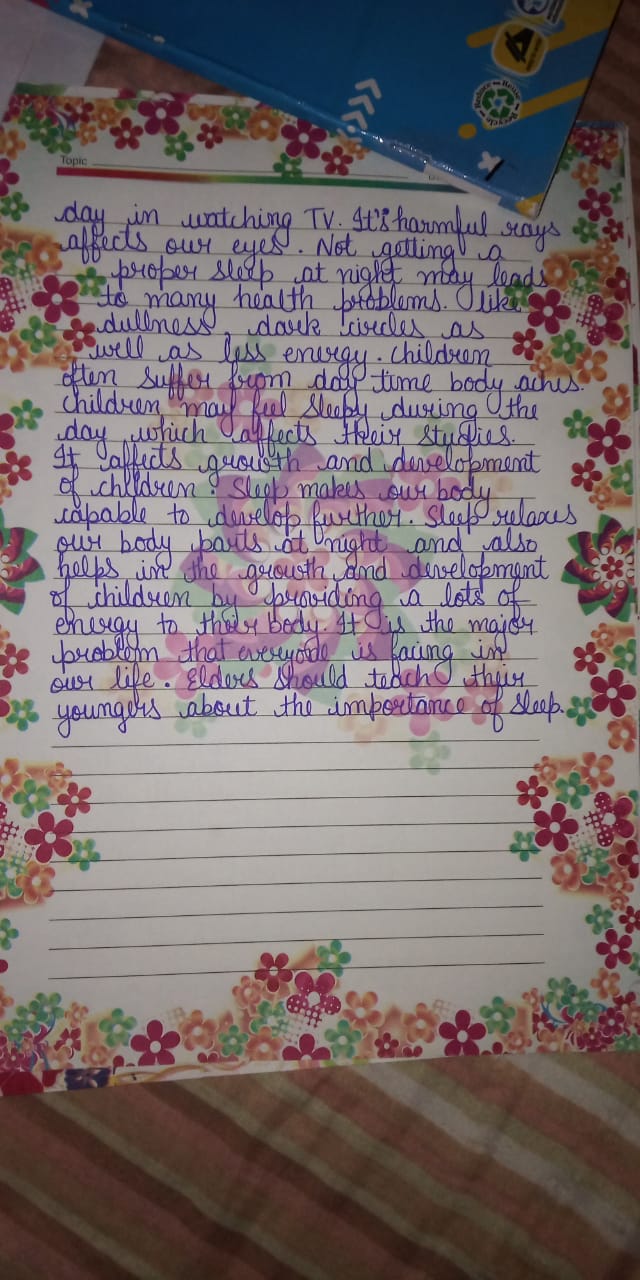 Reduce Reuse Recycle
Topic
day in watching TV. It's harmful rays
affects our eyes. Not getting a
proper sleep at night may leads
to many health problems. like
dullness, dark circles as
well as less energy. Children
often suffer from day time body aches.
Children may feel sleepy during the
day which affects their studies.
It affects growth and development
of children. Sleep makes our body
capable to develop further. Sleep relaxes
our body parts at night and also
helps in the growth and development
of children by providing a lots of
energy to their body. It is the major
problem that everyone is facing in
our life. Elders should teach their
youngers about the importance of sleep.